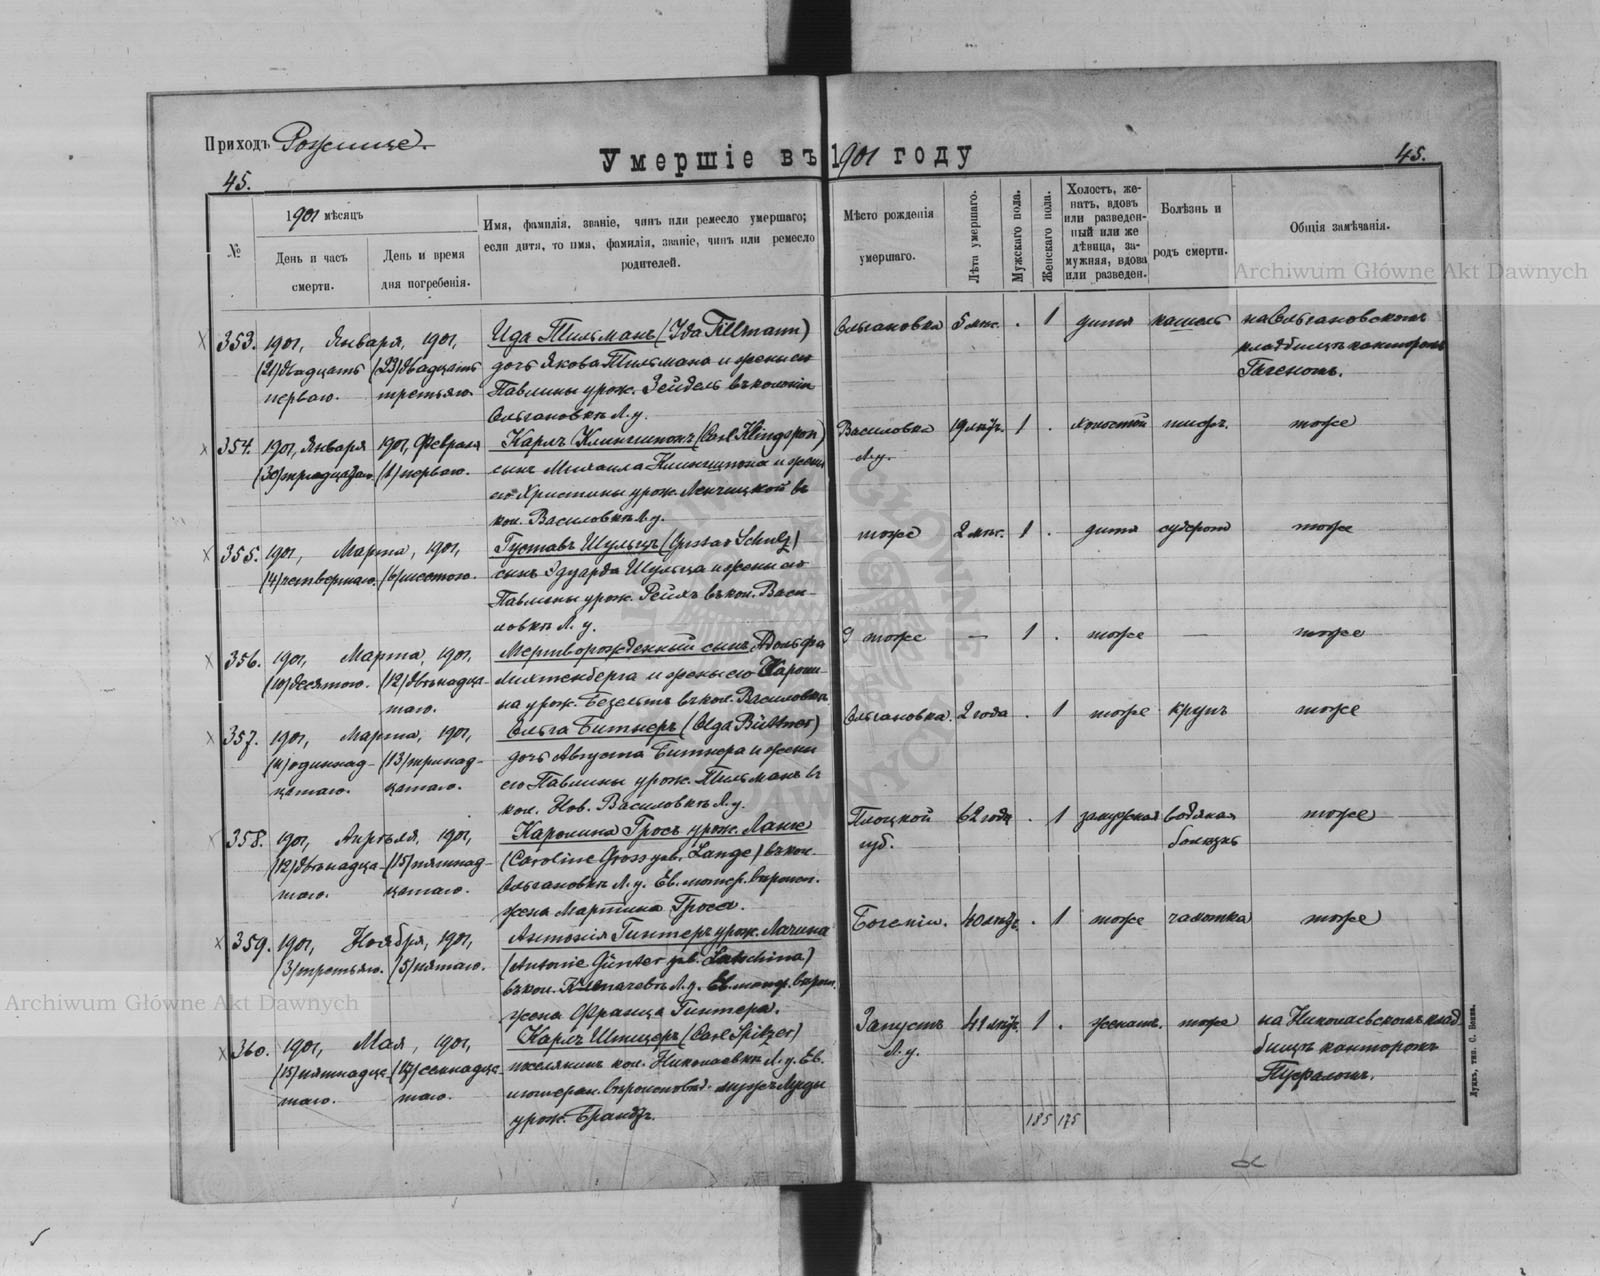 Приходъ Рожище.
Умершіе въ 1901 году
45.
45.
№
1901 мѣсяцъ
День и часъ
смерти.
День и время
дня погребенія.
Имя, фамилія, званіе, чинъ или ремесло умершаго;
если дитя, то имя, фамилія, званіе, чинъ или ремесло
родителей.
Мѣсто рожденія
умершаго.
Лѣта умершаго.
Мужскаго пола.
Женскаго пола.
Холостъ, же-
натъ, вдовъ
или разведен-
ный или же
дѣвица, за-
мужняя, вдова
или разведен.
Болѣзнь и
родъ смерти.
Общія замѣчанія.
Archiwum Główne Akt Dawnych
353. 1901, Января, 1901, Ида Тильманъ (Ida Tillmann) Ольгановка 5 мѣс. . 1 дитя кашель на Ольгановскомъ
(21) двадцать (23) двадцать дочь Якова Тильмана и жены его кладбищѣ канторомъ
перваго. третьяго. Павлины урож. Зейдель въ колоніи
Ольгановкѣ Л. у.
354. 1901, Января 1901, Февраля Карлъ Клингшпонъ (Carl Klingspon) Василовка 19 лѣтъ. 1 . холостой тифъ. тоже
(30) тридцатаго. (1) перваго. сынъ Михаила Клингшпона и жены Л. у.
его Христины урож. Ленчицкой въ
кол. Василовкѣ Л. у.
355. 1901, Марта, 1901, Густавъ Шульцъ (Gustav Schulz) тоже 2 мѣс. 1 . дитя судороги тоже
(4) четвертаго. (6) шестого. сынъ Эдуарда Шульца и жены его
Павлины урож. Рейхъ въ кол. Васи-
ловкѣ Л. у.
356. 1901, Марта, 1901, Мертворожденный сынъ Адольфа тоже — 1 . тоже — тоже
(10) десятого. (12) двѣнадца- Лихтенберга и жены его Кароли-
таго. на урож. Безельтъ въ кол. Василовка
357. 1901, Марта, 1901, Ольга Битнеръ (Olga Büttner) Ольгановка. 2 года . 1 тоже крупъ тоже
(11) одиннад- (13) тринад- дочь Августа Битнера и жены
цатаго. цатаго. его Павлины урож. Тильманъ въ
кол. Нов. Василовкѣ Л. у.
358. 1901, Апрѣля, 1901, Каролина Гросъ урож. Ланге Плоцкой 62 года . 1 замужняя водяная тоже
(12) двѣнадца- (15) пятнад- (Caroline Gross geb. Lange) въ кол. губ. болѣзнь
таго. цатаго. Ольгановкѣ Л. у. Ев. лютер. вѣроисп.
жена Мартина Гроса.
359. 1901, Ноября, 1901, Антонія Гинтеръ урож. Лачина 40 лѣтъ. . 1 тоже чахотка тоже
(3) третьяго. (5) пятаго. (Antonie Günter geb. Latschina)
въ кол. Л. у. Ев. лютер. вѣроисп.
жена Франца Гинтера.
360. 1901, Мая, 1901, Карлъ Шпицеръ (Carl Spitzer) Запустъ 41 лѣтъ. 1 . женатъ. тоже на Николаевскомъ клад-
(15) пятнадца- (17) семнадца- поселянинъ кол. Николаевкѣ Л. у. Ев. Л. у. бищѣ канторомъ
таго. таго. лютеран. вѣроисповѣд. мужъ Луды
урож. Брандтъ.
185 175
Archiwum Główne Akt Dawnych